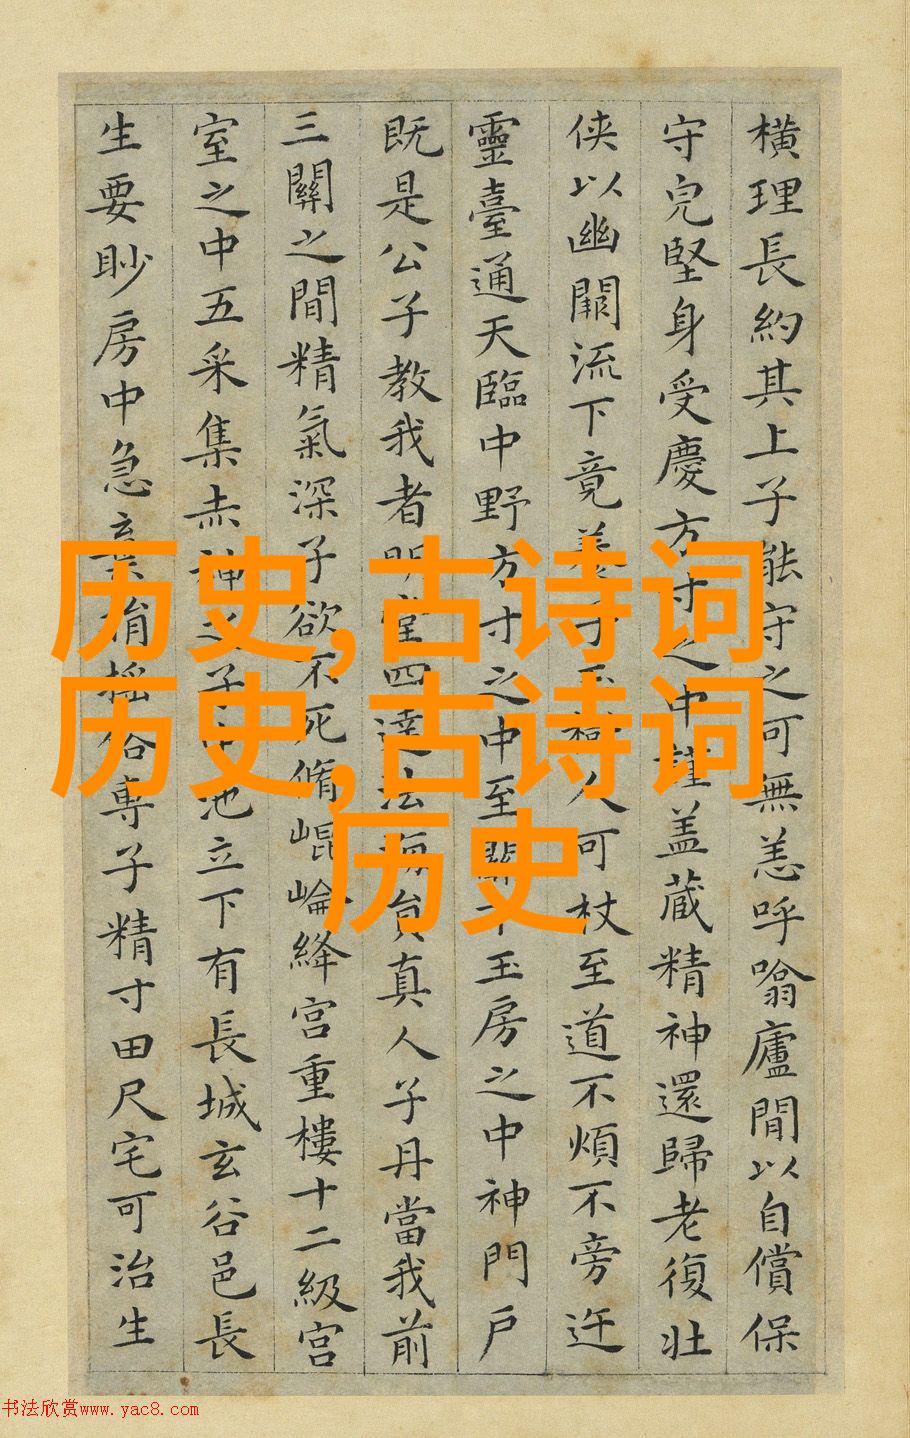 橫理長約其上子能守之可無恙呼噏廬間以自償保
守完堅身受慶方寸之中謹盖藏精神還歸老復壮
侠以幽闕流下竟養子玉樹人可杖至道不煩不旁迕
靈臺通天臨中野方寸之中至關下玉房之中神門戶
既是公子教我者明堂四達法海員真人子丹當我前
三關之間精氣深子欲不死脩崐崘絳宮重樓十二級宮
室之中五采集赤神之子中池立下有長城玄谷邑長
生要眇房中急棄捐搖俗專子精寸田尺宅可治生
历史,古诗词
历史,古诗词
历史
书法欣赏www.yac8.com